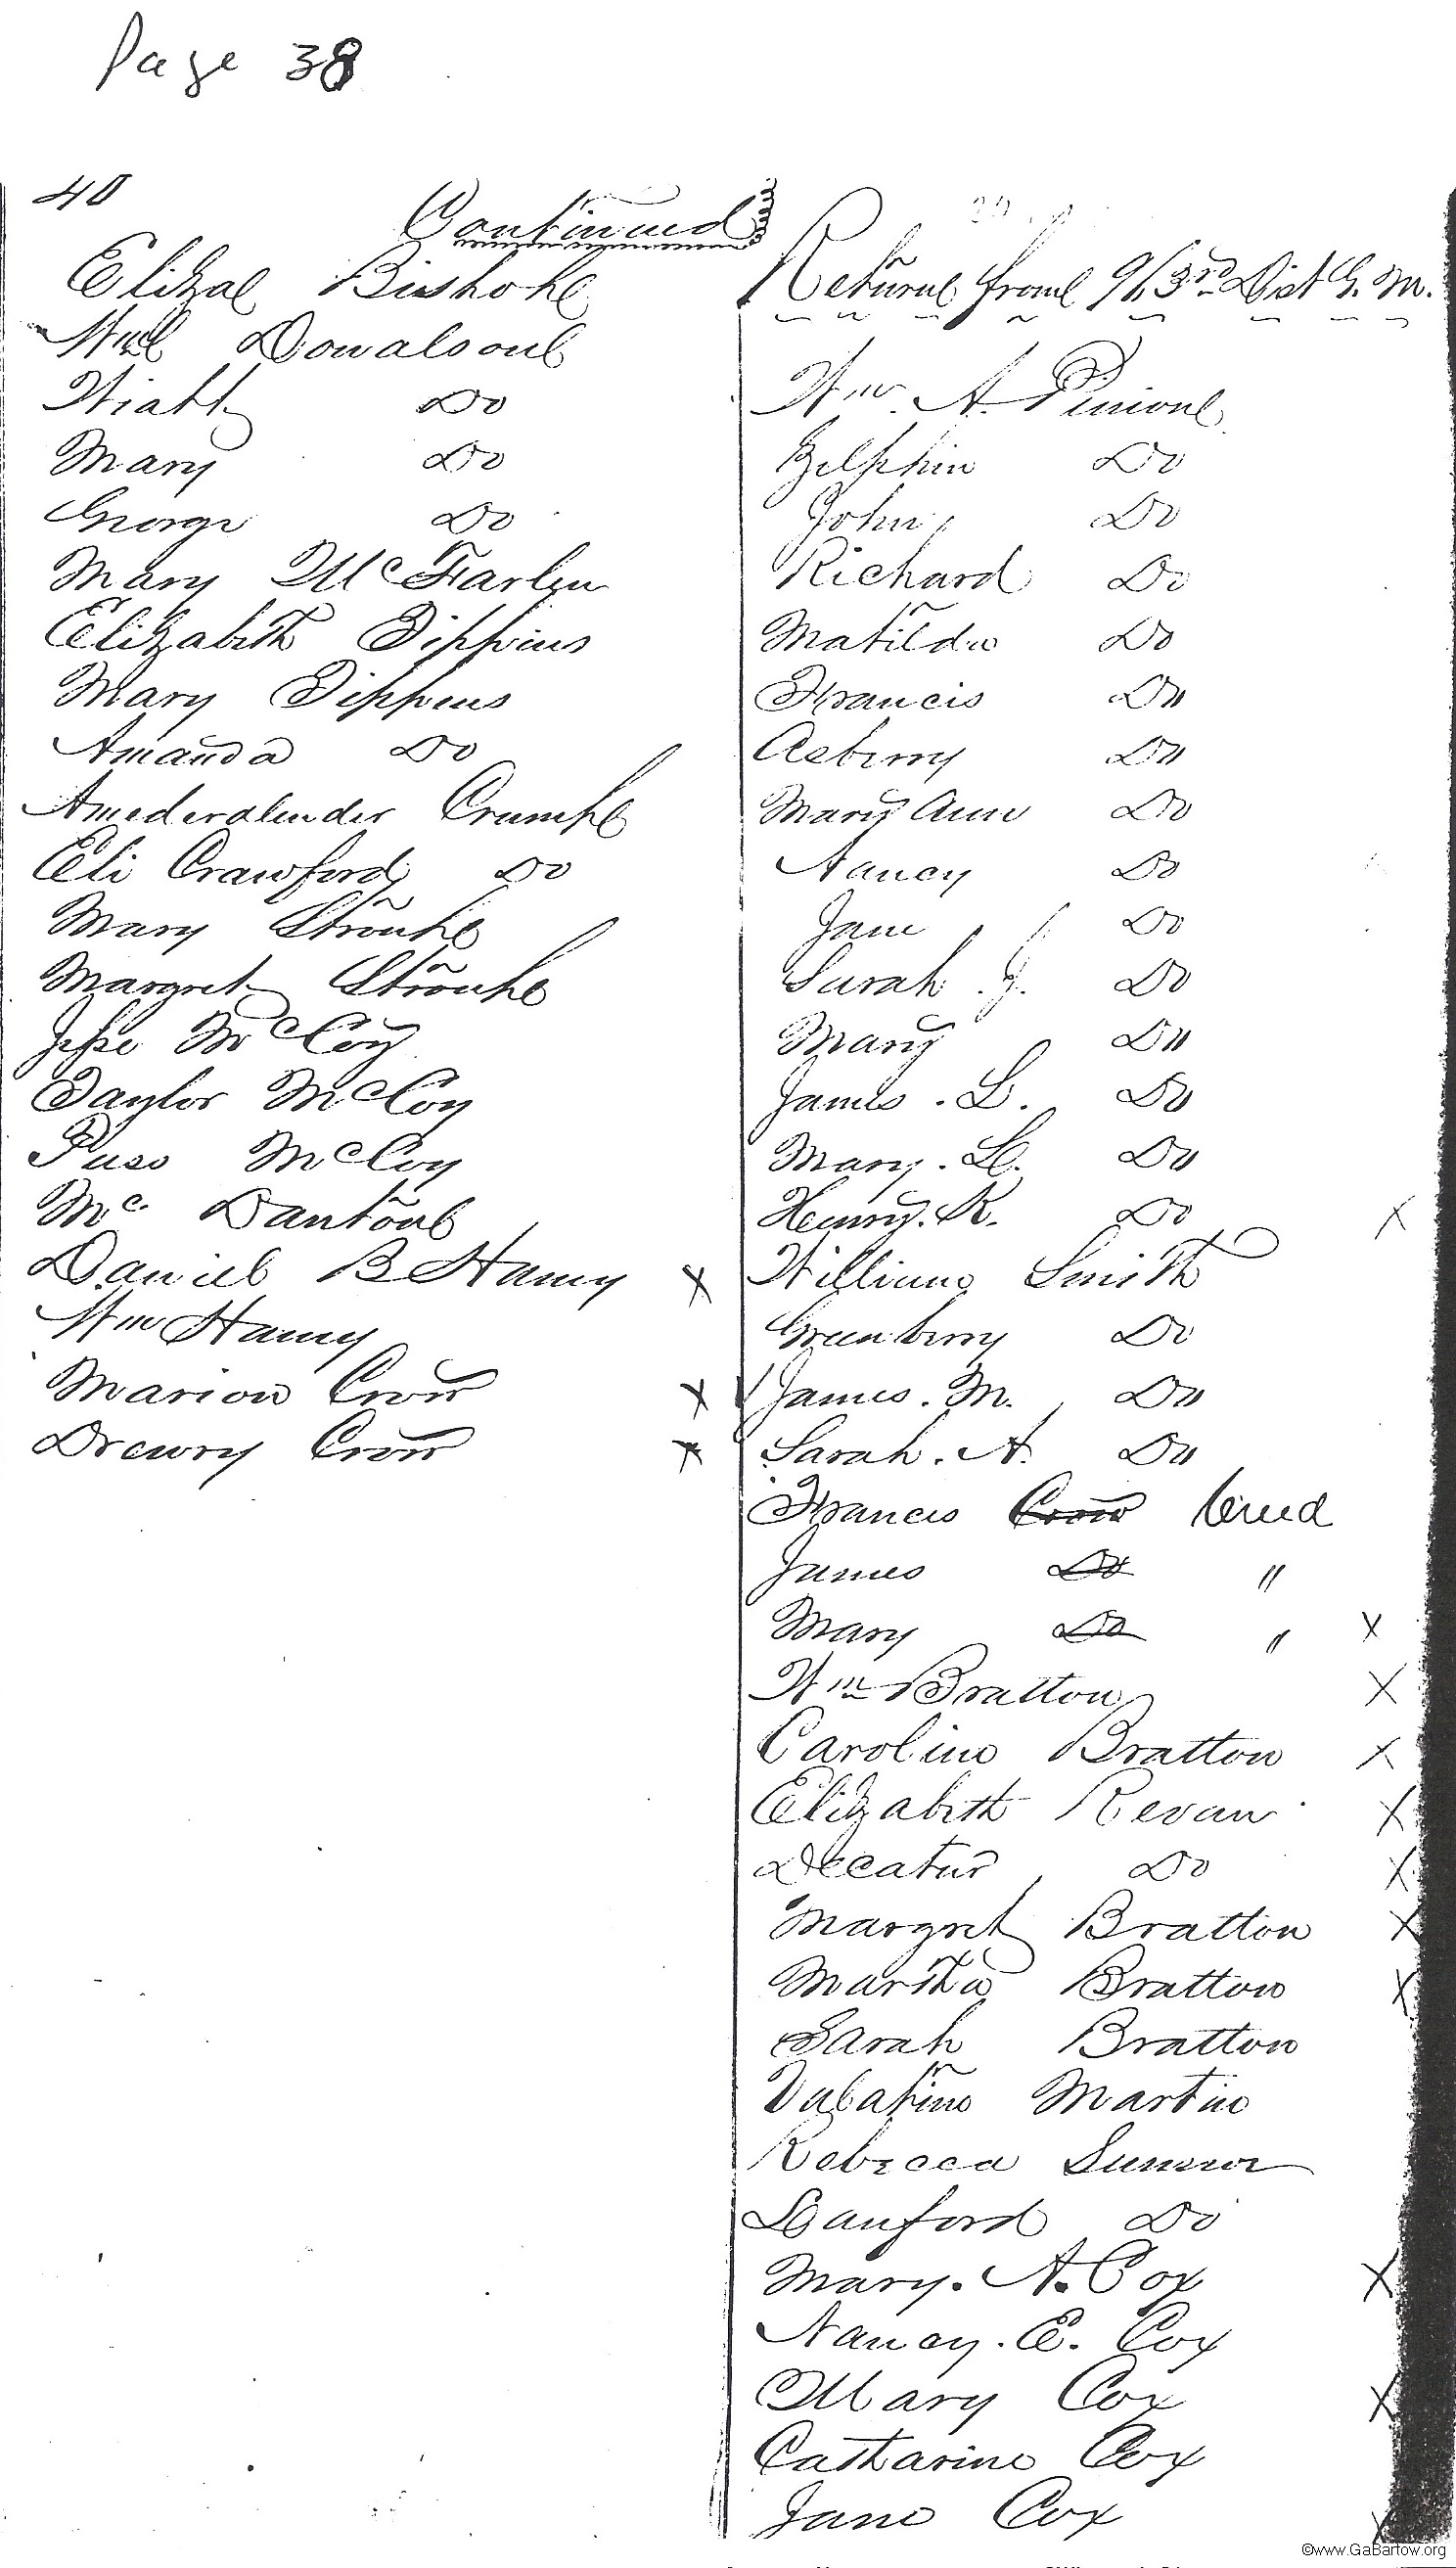 Page 38
40
Continued
Elizal Bishop
Wm Donalson
Wiatt Do
Mary Do
George Do
Mary McFarlin
Elizabeth Tippins
Mary Tippens
Amanda Do
Crump
Eli Crawford Do
Mary Stroup
Margret Stroup
Jesse McCoy
Taylor McCoy
Puss McCoy
Mc Danton
Daniel B Hamy X
Wm Hamy
Marion Crow X
Drewry Crow X
Return from 963rd Dist G. M.
Wm A. Pinion
Zelphin Do
John Do
Richard Do
Matilda Do
Francis Do
Asberry Do
Mary Ann Do
Nancy Do
Jane Do
Sarah J. Do
Mary Do
James L. Do
Mary L. Do
Henry R. Do X
William Smith
Greenberry Do
James M. Do
Sarah A. Do
Francis Crow
James Do "
Mary Do " X
Wm Bratton X
Caroline Bratton X
Elizabeth Revan X
Decatur Do X
Margret Bratton X
Martha Bratton X
Sarah Bratton
Valatine Martin
Rebecca Sumner
Sanford Do
Mary. A. Cox X
Nancy. E. Cox
Mary Cox X
Catharine Cox
Jane Cox X
©www.GaBartow.org